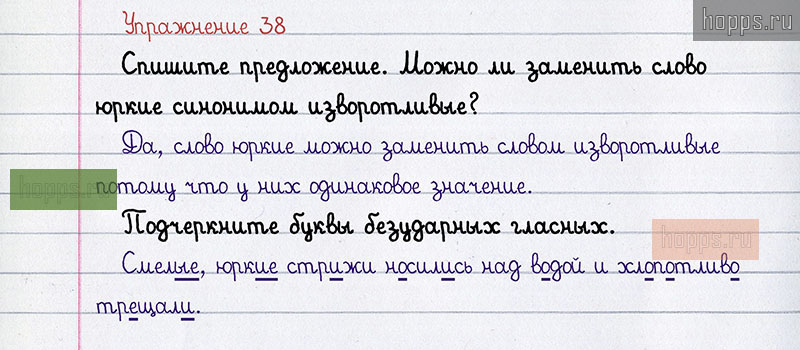 Упражнение 38
hopps.ru
Спишите предложение. Можно ли заменить слово
юркие синонимом изворотливые?
Да, слово юркие можно заменить словом изворотливые
hopps.ru
потому что у них одинаковое значение.
Подчеркните буквы безударных гласных.
hopps.ru
Смелые, юркие стрижи носились над водой и хлопотливо
трещали.